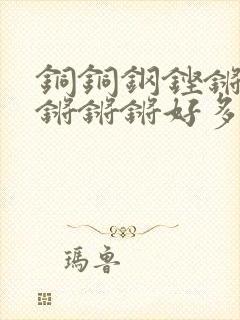 銅銅鋼鏗鏘
鏘鏘鏘好多
瑪魯